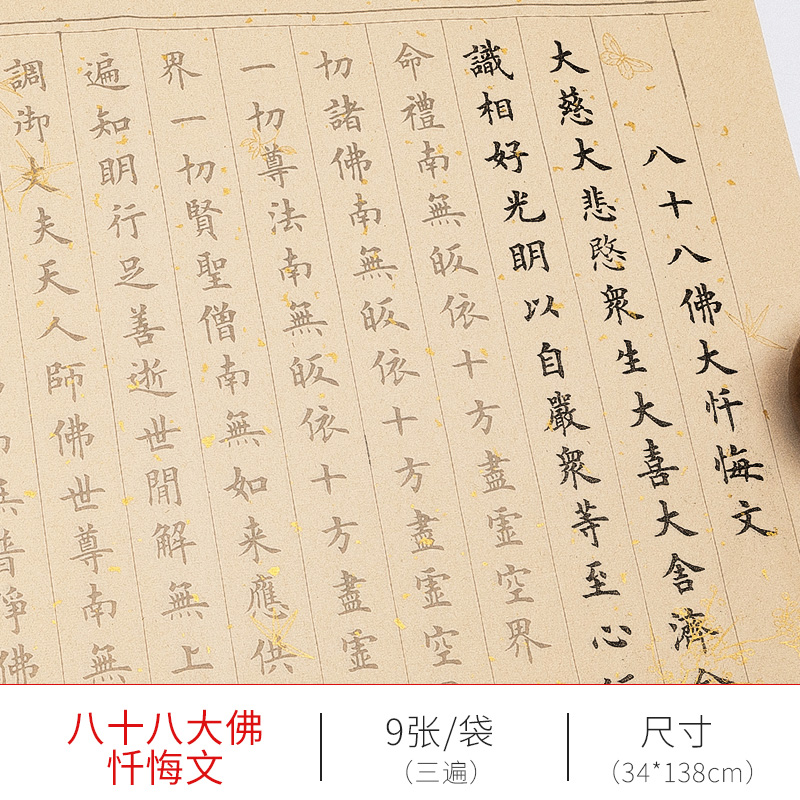 八十八佛大忏悔文
大慈大悲愍衆生大喜大舍濟
識相好光明以自嚴衆等至心
命禮南無皈依十方盡虛空界
切諸佛南無皈依十方盡虛空
一切尊法南無皈依十方盡虛
界一切賢聖僧南無如来應供
遍知明行足善逝世間解無上
調御丈夫天人師佛世尊南無
無普淨佛
八十八大佛
忏悔文
9张/袋
（三遍）
尺寸
（34*138cm）